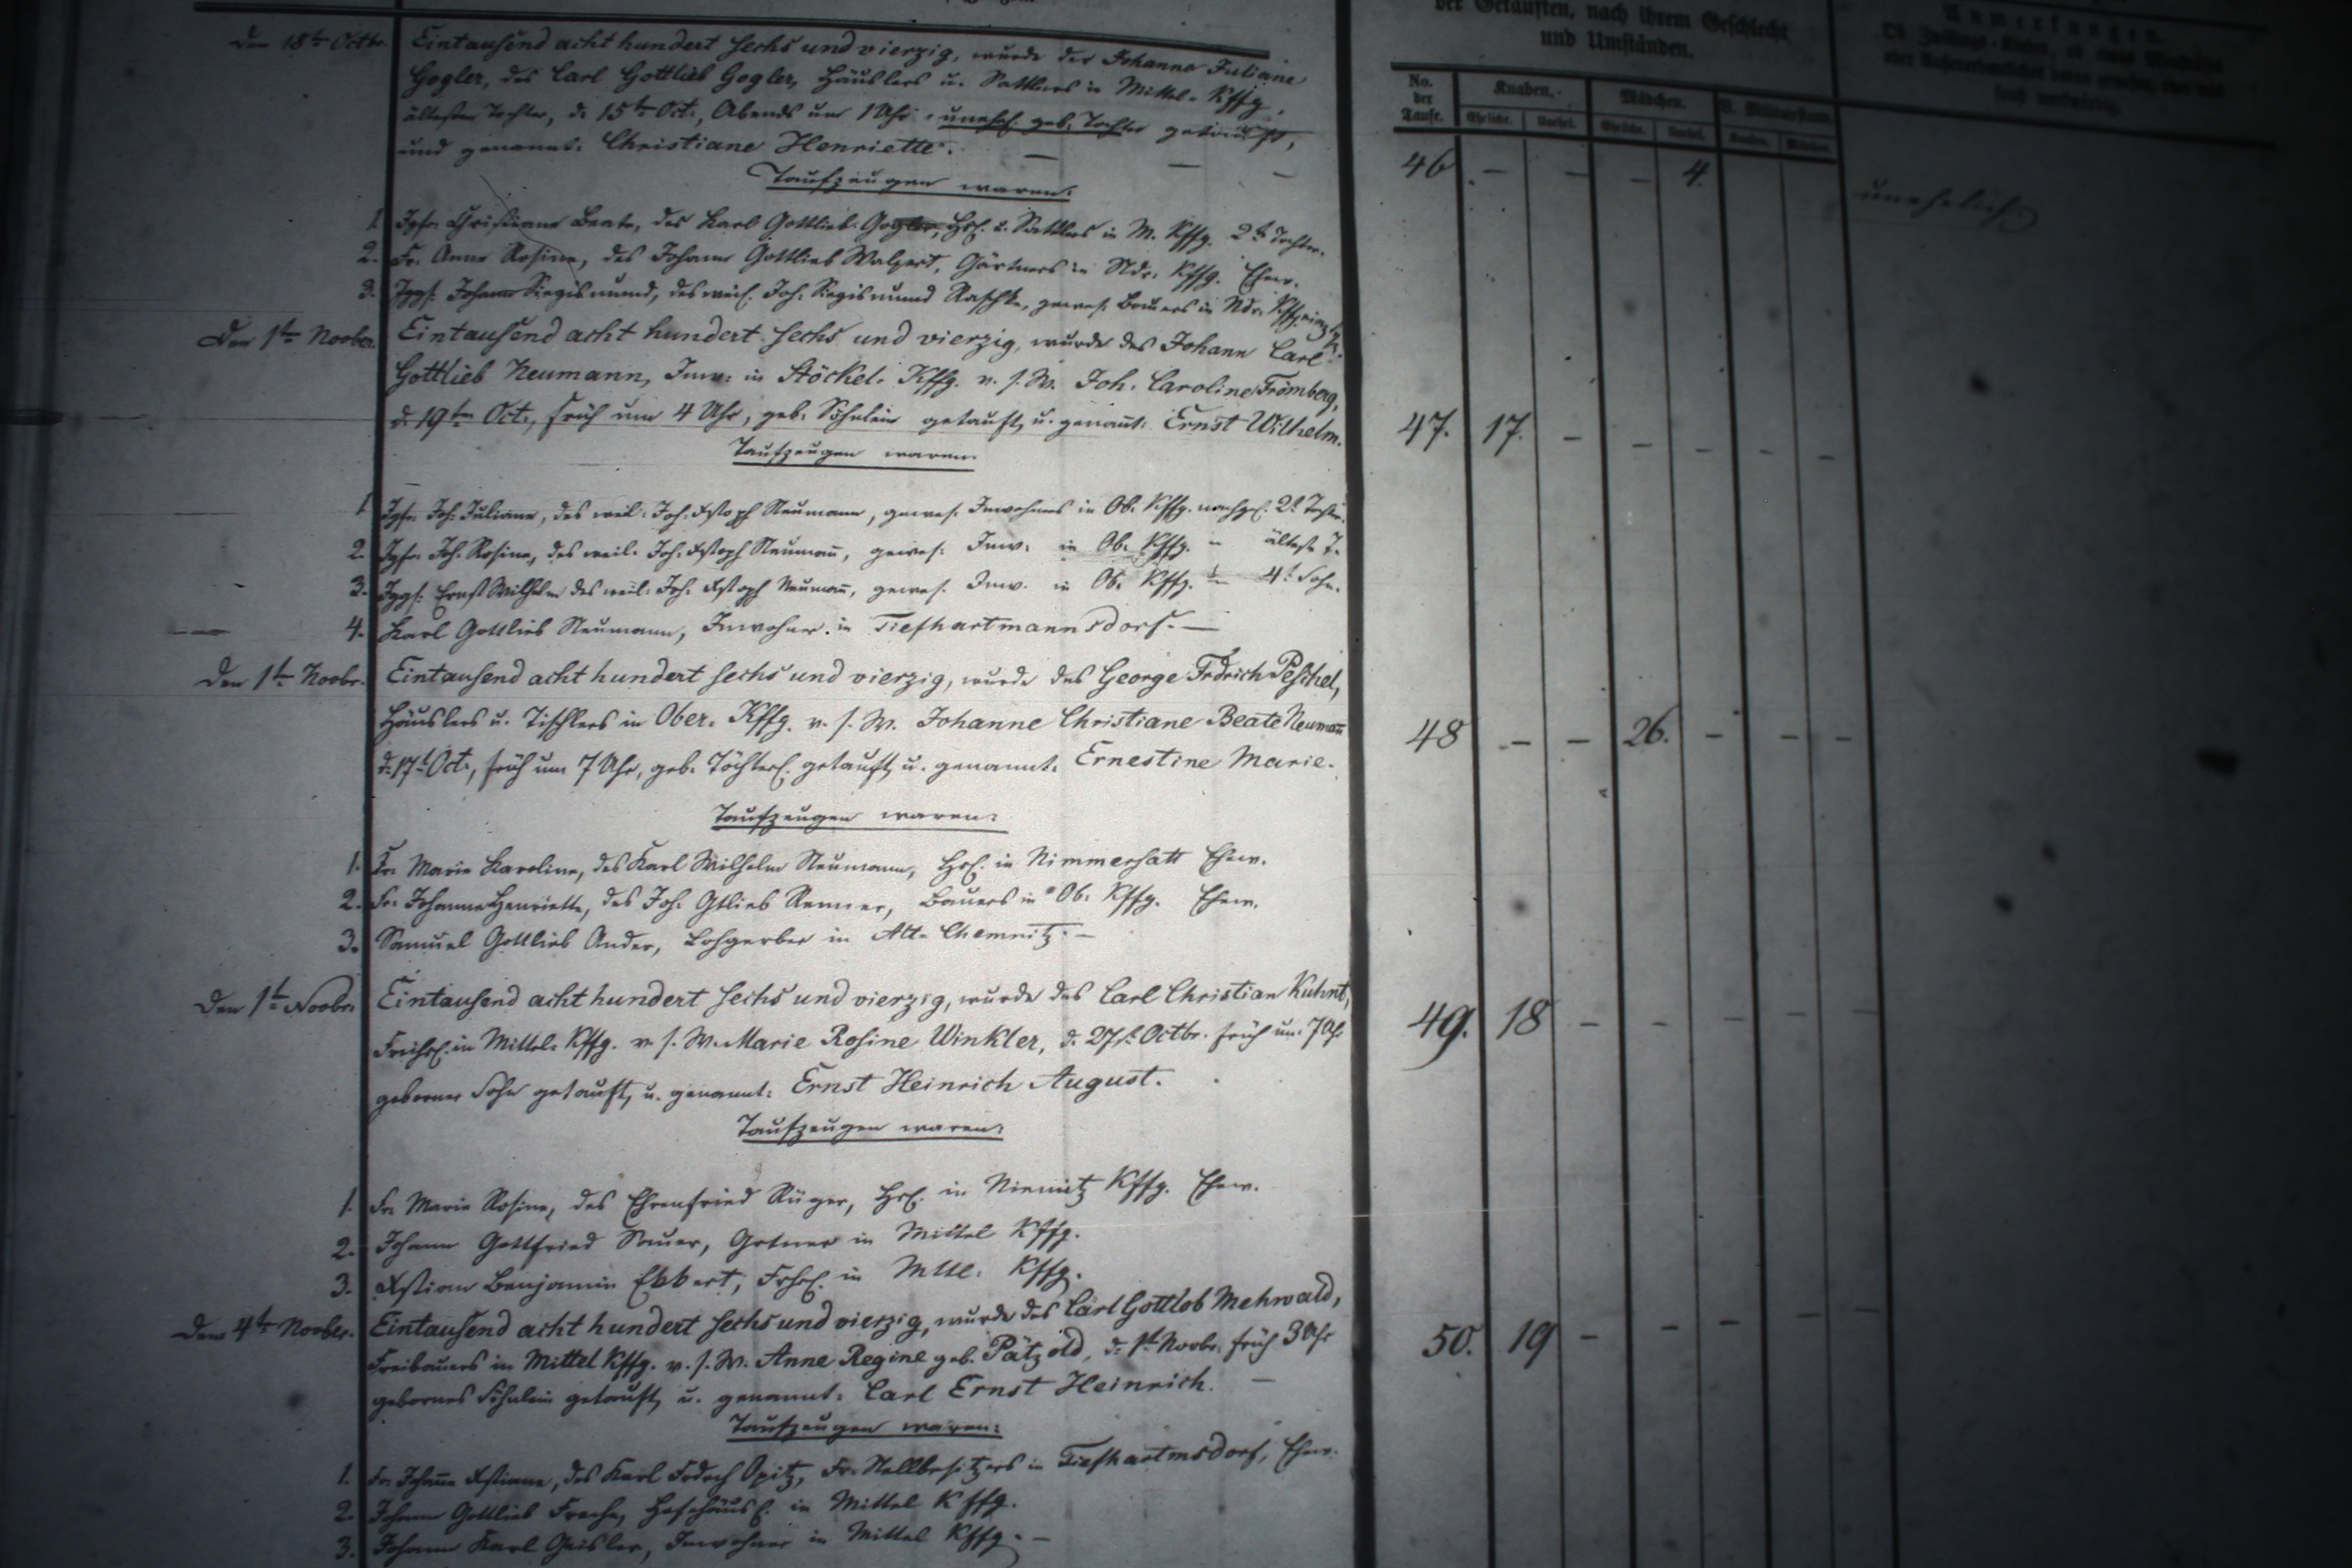 der Getauften, nach ihrem Geschlecht
und Umständen.
Anmerkungen.
No. der Taufe.
Knaben.
Mädchen.
Ehelich. Unehel. Ehelich. Unehel. Knaben. Mädchen.
Den 18t Octbr. Eintausend acht hundert sechs und vierzig, wurde der Johanne Juliane
Gogler, des Carl Gottlieb Gogler, Häuslers u. Sattlers in Mittel-Kffg.
ältesten Tochter, d. 15t Oct., Abends um 1 Uhr, unehel. geb. Tochter getauft,
und genannt: Christiane Henriette. — — —
46 — — — 4. unehelich
Taufzeugen waren:
1. Jgfr. Christiane Beate, des Karl Gottlieb Gogler, Hsl. u. Sattlers in M. Kffg. 2te Tochter.
2. Fr. Anne Rosine, des Johann Gottlieb Walpert, Gärtners in Ndr. Kffg. Ehew.
3. Jggs. Johann Siegismund, des weil. Joh. Siegismund Raschke, gewes. Bauers in Ndr. Kffg.
Den 1t Novbr. Eintausend acht hundert sechs und vierzig, wurde des Johann Carl
Gottlieb Neumann, Inw. in Stöckel-Kffg. v. s. W. Joh. Caroline Frömberg,
d. 19ten Oct., früh um 4 Uhr, geb. Söhnlein getauft, u. genannt: Ernst Wilhelm.
47. 17. — — — — —
Taufzeugen waren:
1. Jgfr. Joh. Juliane, des weil. Joh. Xstoph Neumann, gewes. Inwohners in Ob. Kffg. nachgel. 2t Tochter.
2. Jgfr. Joh. Rosine, des weil. Joh. Xstoph Neumann, gewes. Inw. in Ob. Kffg. älteste T.
3. Jggs. Ernst Wilhelm des weil. Joh. Xstoph Neumann, gewes. Inw. in Ob. Kffg. 4t Sohn.
4. Karl Gottlieb Neumann, Inwohner in Tiefhartmannsdorf. —
Den 1t Novbr. Eintausend acht hundert sechs und vierzig, wurde des George Frdrich Peschel,
Häuslers u. Tischlers in Ober-Kffg. v. s. W. Johanne Christiane Beate Neumann
d. 17t Oct., früh um 7 Uhr, geb. Töchterl. getauft, u. genannt: Ernestine Marie.
48 — — 26. — — —
Taufzeugen waren:
1. Fr. Marie Karoline, des Karl Wilhelm Neumann, Hsl. in Nimmersatt Ehew.
2. Fr. Johanne Henriette, des Joh. Gtlieb Renner, Bauers in Ob. Kffg. Ehew.
3. Samuel Gottlieb Ander, Lohgerber in Alt-Chemnitz. —
Den 1t Novbr. Eintausend acht hundert sechs und vierzig, wurde des Carl Christian Kuhnt,
Freihsl. in Mittel-Kffg. v. s. W. Marie Rosine Winkler, d. 27t Octbr. früh um 7 Uhr
geborner Sohn getauft, u. genannt: Ernst Heinrich August.
49. 18 — — — — —
Taufzeugen waren:
1. Fr. Marie Rosine, des Ehrenfried Rüger, Hsl. in Niemitz Kffg. Ehew.
2. Johann Gottfried Sauer, Grtner in Mittel Kffg.
3. Xstian Benjamin Ekkert, Frhsl. in Mttl. Kffg.
Den 4t Novber. Eintausend acht hundert sechs und vierzig, wurde des Carl Gottlob Mehwald,
Freibauers in Mittel Kffg. v. s. W. Anne Regine geb. Pätzold, d. 1t Novbr. früh 3 Uhr
gebornes Söhnlein getauft, u. genannt: Carl Ernst Heinrich. —
50. 19 — — — — —
Taufzeugen waren:
1. Fr. Johanne Xstiane, des Karl Frdrch Opitz, Fr. Stellbesitzers in Tiefhartmsdorf, Ehew.
2. Johann Gottlieb Freche, Hofehäusl. in Mittel Kffg.
3. Johann Karl Geisler, Inwohner in Mittel Kffg. —